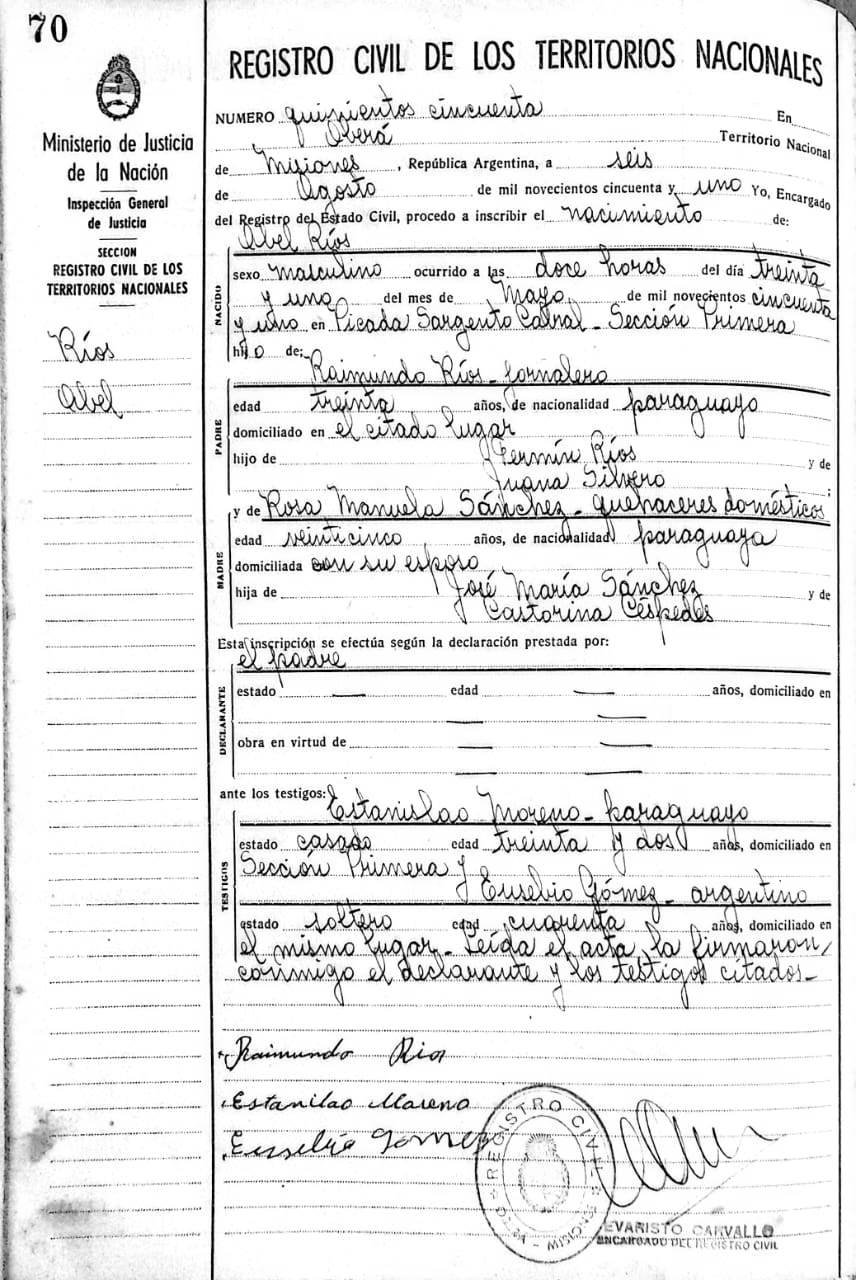 70
Ministerio de Justicia
de la Nación
Inspección General
de Justicia
SECCION
REGISTRO CIVIL DE LOS
TERRITORIOS NACIONALES
Ríos
Abel
REGISTRO CIVIL DE LOS TERRITORIOS NACIONALES
NUMERO quinientos cincuenta En
Oberá Territorio Nacional
de Misiones, República Argentina, a seis
de Agosto de mil novecientos cincuenta y uno Yo, Encargado
del Registro del Estado Civil, procedo a inscribir el nacimiento de:
Abel Ríos
NACIDO
sexo masculino ocurrido a las doce horas del día treinta
y uno del mes de Mayo de mil novecientos cincuenta
y uno en Picada Sargento Cabral - Sección Primera
hijo de:
PADRE
Raimundo Ríos - jornalero
edad treinta años, de nacionalidad paraguayo
domiciliado en el citado lugar
hijo de Fermín Ríos y de
Juana Silvero ;
MADRE
y de Rosa Manuela Sánchez - quehaceres domésticos
edad veinticinco años, de nacionalidad paraguaya
domiciliada con su esposo
hija de José María Sánchez y de
Castorina Céspedes
Esta inscripción se efectúa según la declaración prestada por:
el padre
DECLARANTE
estado — edad — años, domiciliado en
—
obra en virtud de — —
— —
ante los testigos:
TESTIGOS
Estanislao Moreno - paraguayo
estado casado edad treinta y dos años, domiciliado en
Sección Primera y
Eusebio Gómez - argentino
estado soltero edad cuarenta años, domiciliado en
el mismo lugar - Leída el acta, la firmaron,
conmigo el declarante y los testigos citados -
Raimundo Rios
Estanilao Moreno
Eusebio Gomez
REGISTRO CIVIL
MISIONES
EVARISTO CARVALLO
ENCARGADO DEL REGISTRO CIVIL